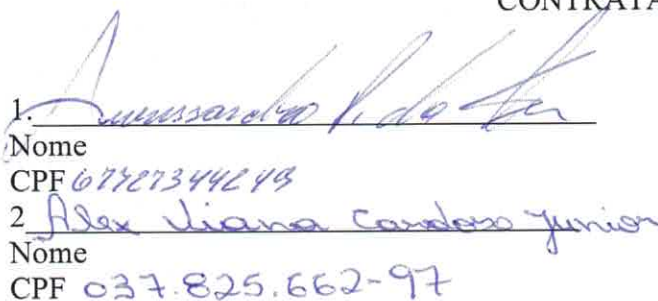 CONTRATA
1.
Nome
CPF
2 Alex Viana Cardoso Junior
Nome
CPF 037.825.662-97